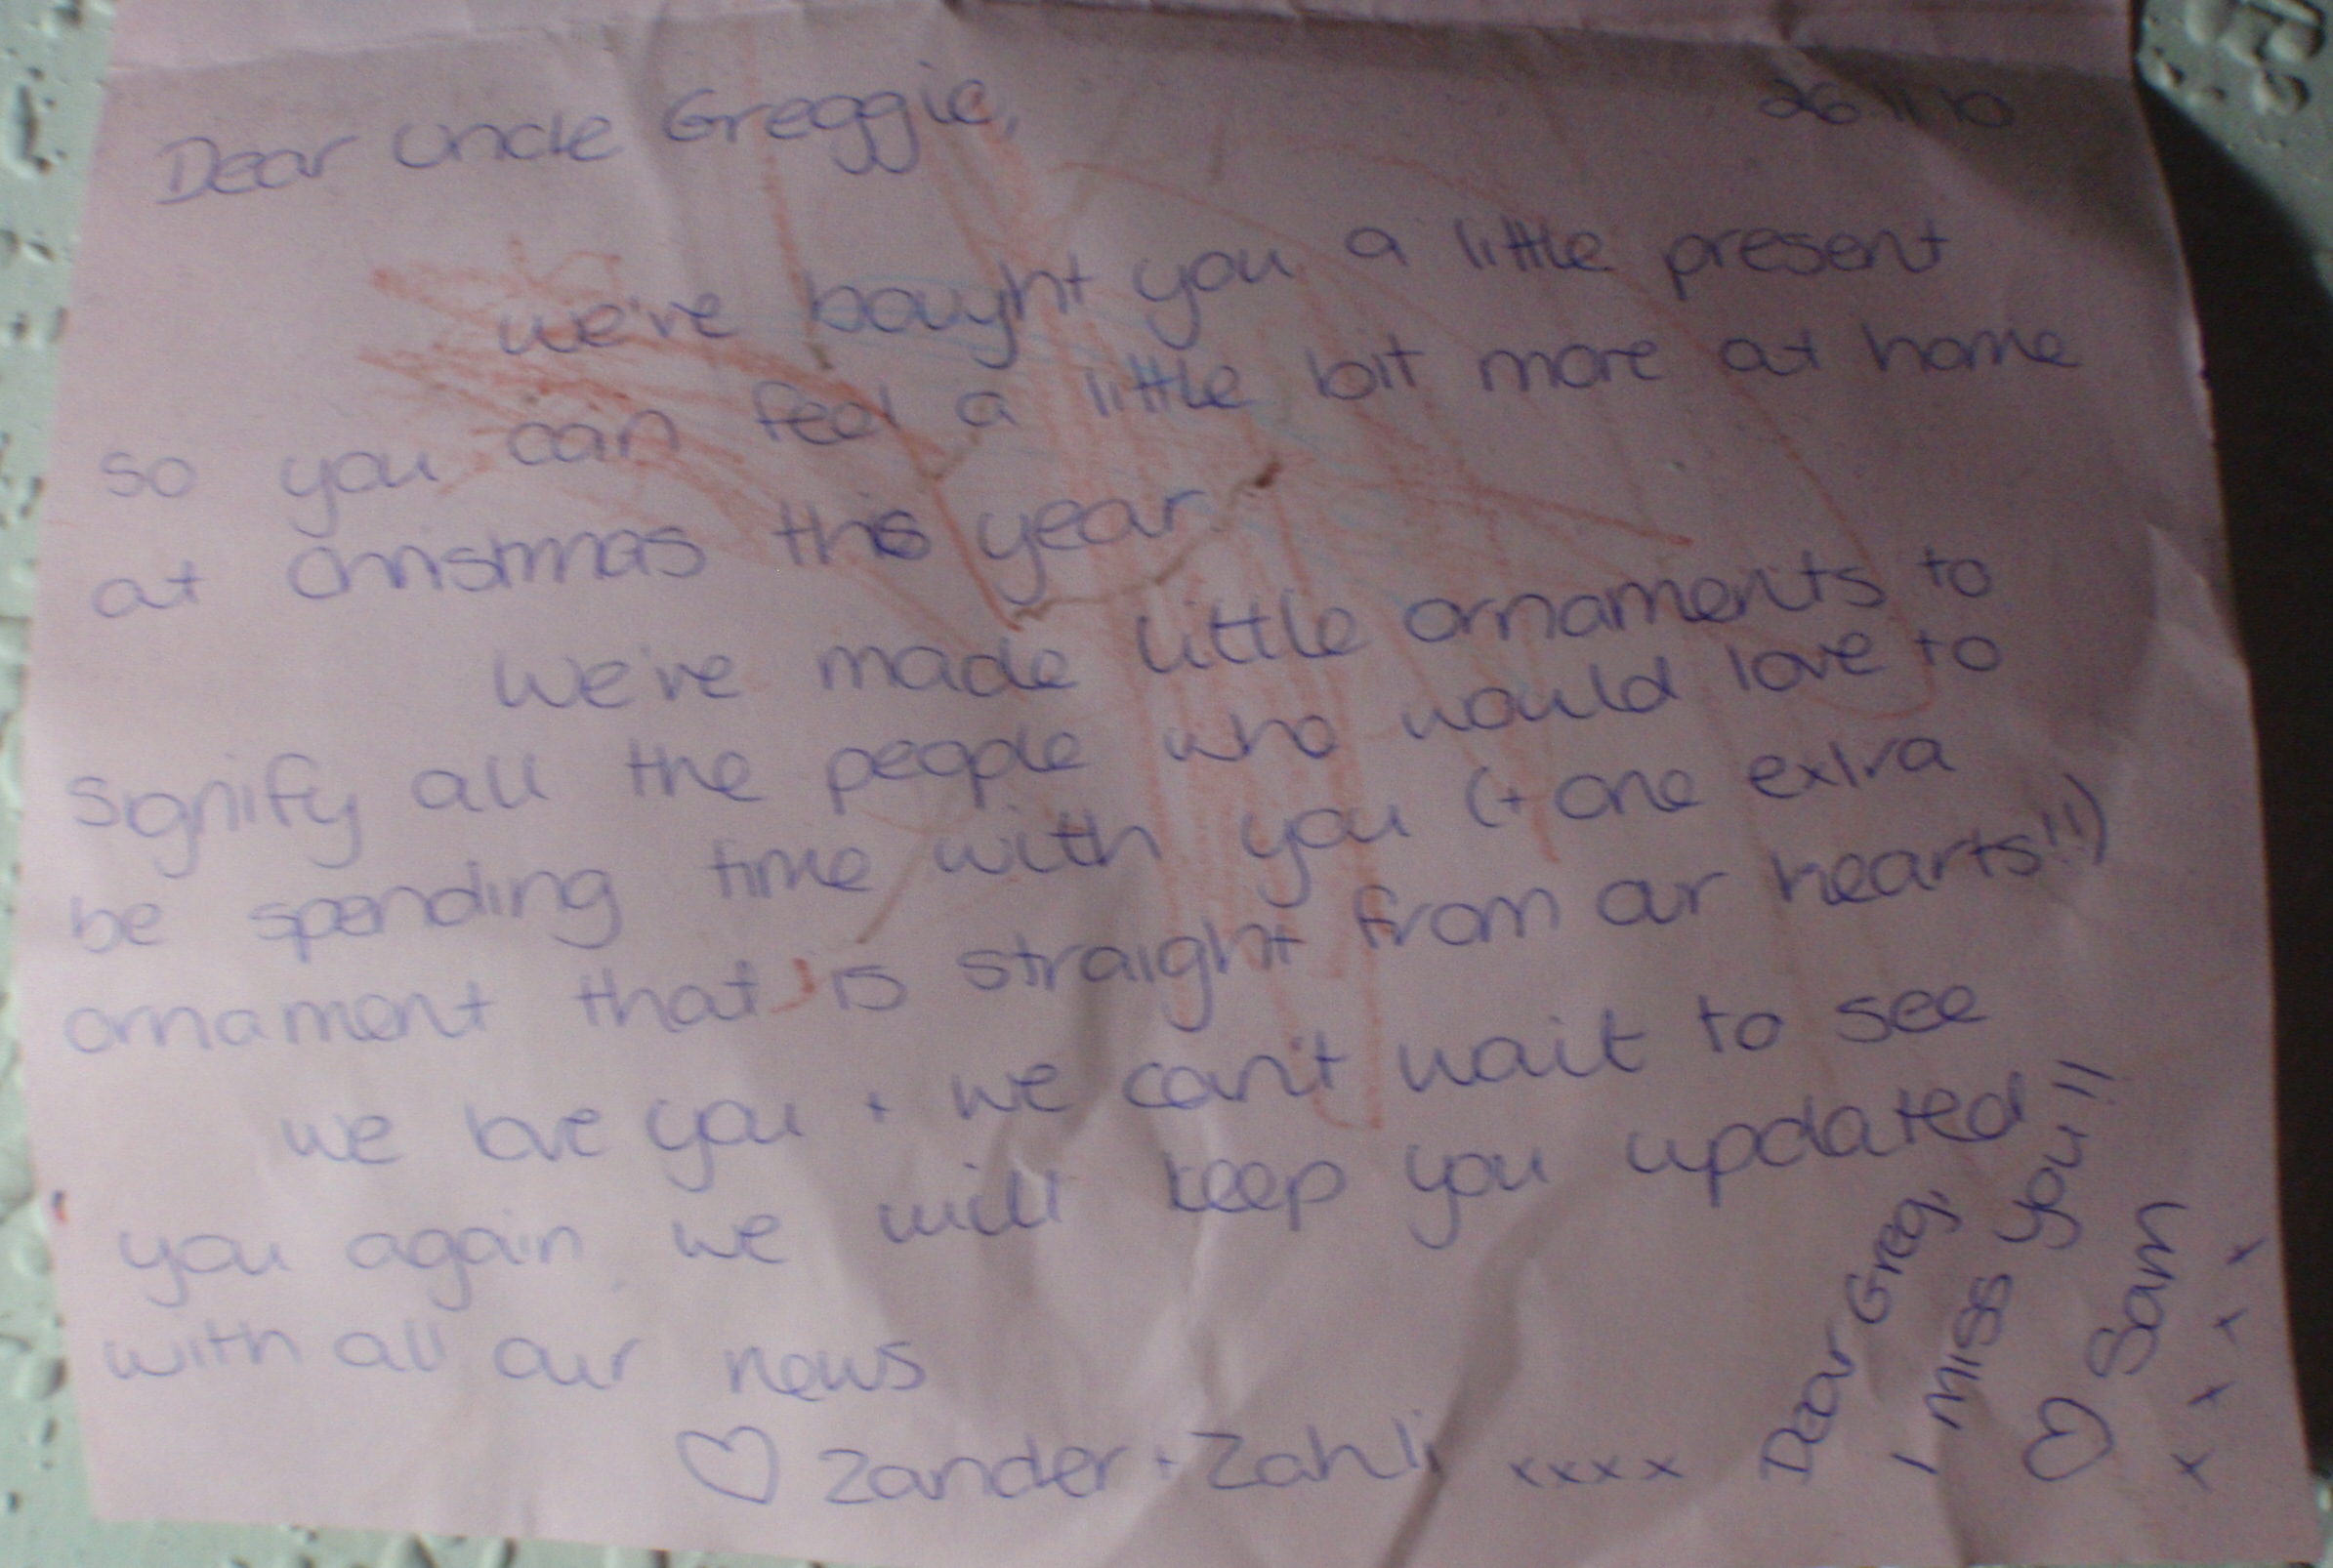 Dear Uncle Greggie,
26 11 10
we've bought you a little present
so you can feel a little bit more at home
at christmas this year.
We've made little ornaments to
signify all the people who would love to
be spending time with you (+ one extra
ornament that is straight from our hearts!!)
we love you + we can't wait to see
you again. we will keep you updated
with all our news
♡ Zander + Zahli xxxx
Dear Greg,
I miss you!!
♡ Sam
x x x x